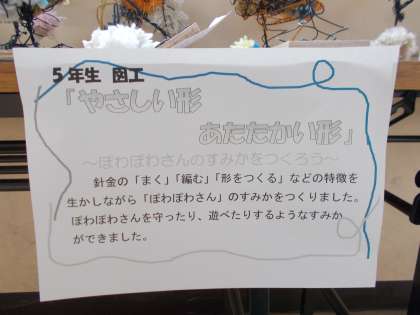 5年生 図工
「やさしい形
あたたかい形」
～ぽわぽわさんのすみかをつくろう～
針金の「まく」「編む」「形をつくる」などの特徴を
生かしながら「ぽわぽわさん」のすみかをつくりました。
ぽわぽわさんを守ったり、遊べたりするようなすみか
ができました。